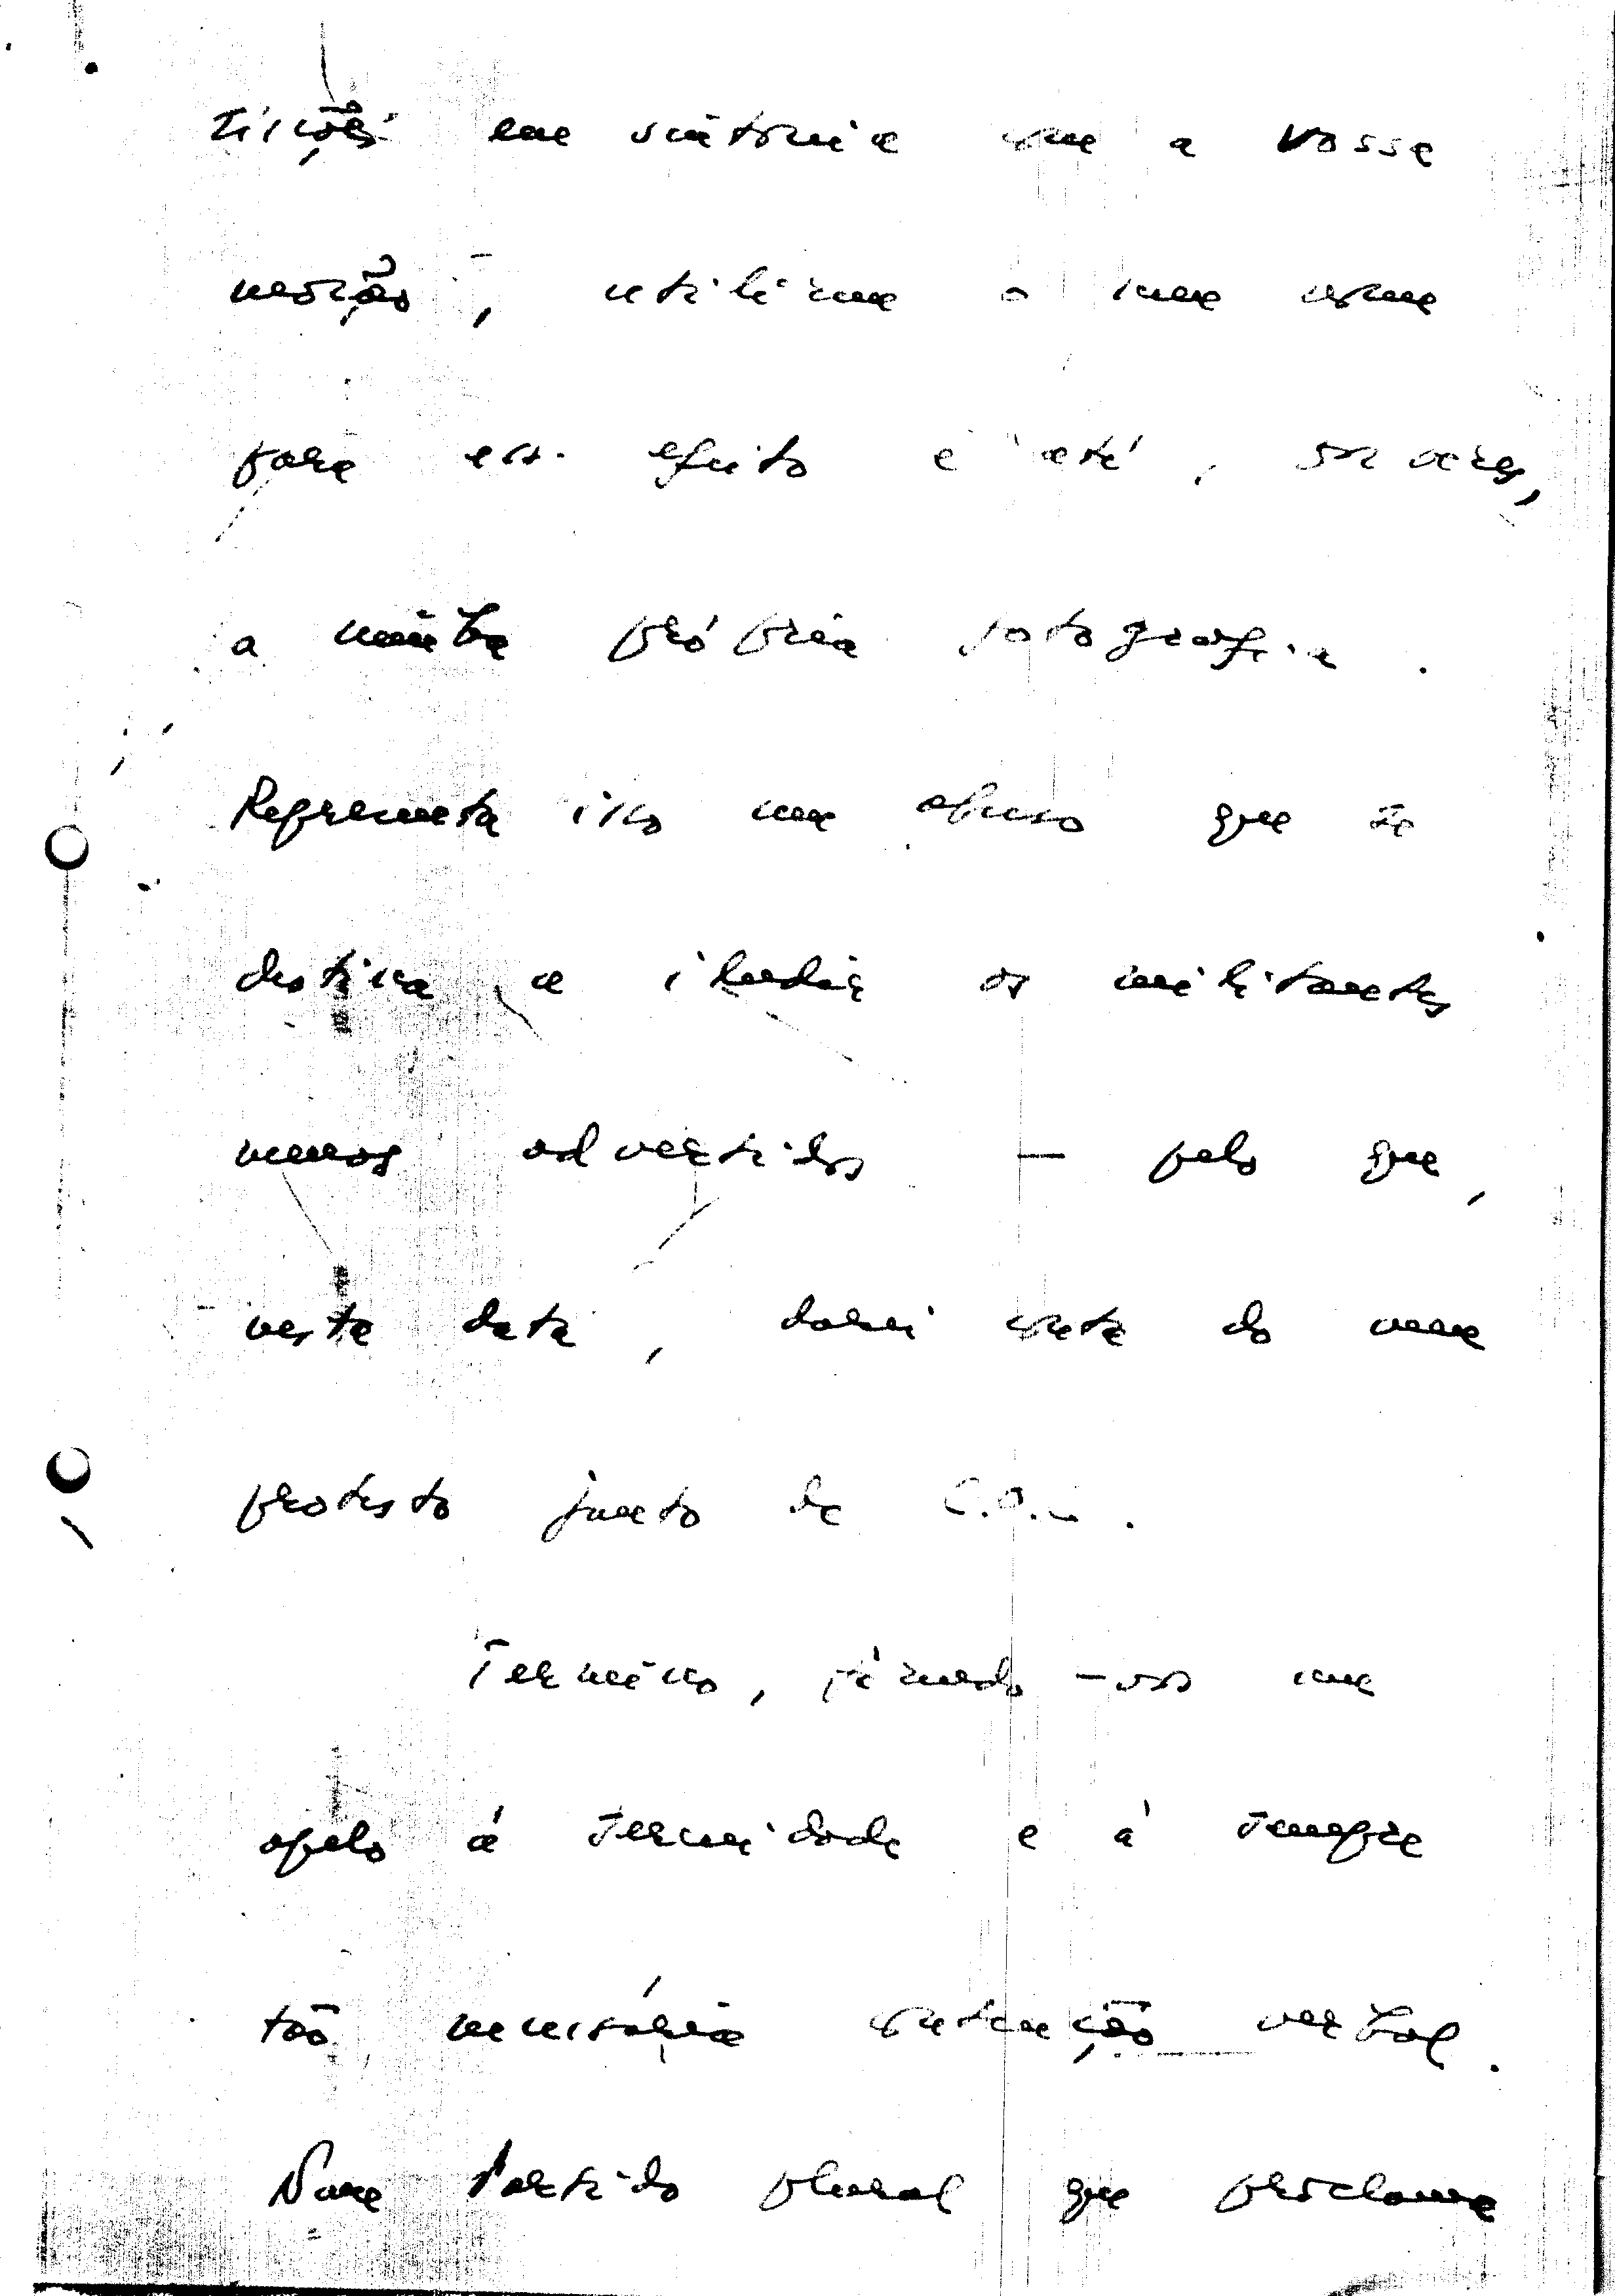 tições em sintonia com a vossa
moção, utilizam o meu nome
para esse efeito e até, por vezes,
a minha própria fotografia.
Representa isso um abuso que se
destina a iludir os militantes
menos advertidos — pelo que,
nesta data, darei conta do meu
protesto junto da
Termino, fazendo-vos um
apelo à serenidade e à sempre
tão necessária contenção verbal.
Num Partido plural que proclama